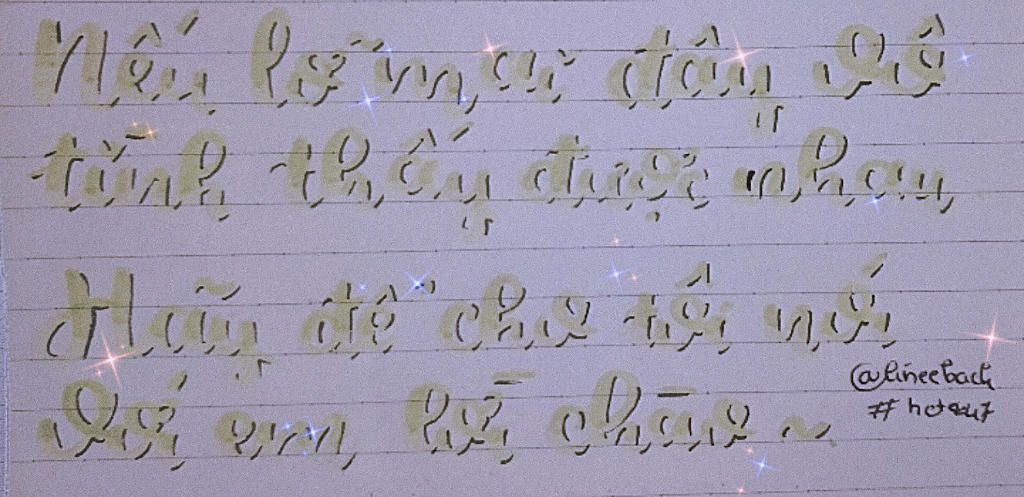 Nếu lỡ mai đây vô
tình thấy được nhau
Hãy để cho tôi nói
với em lời chào ~
@lineebach